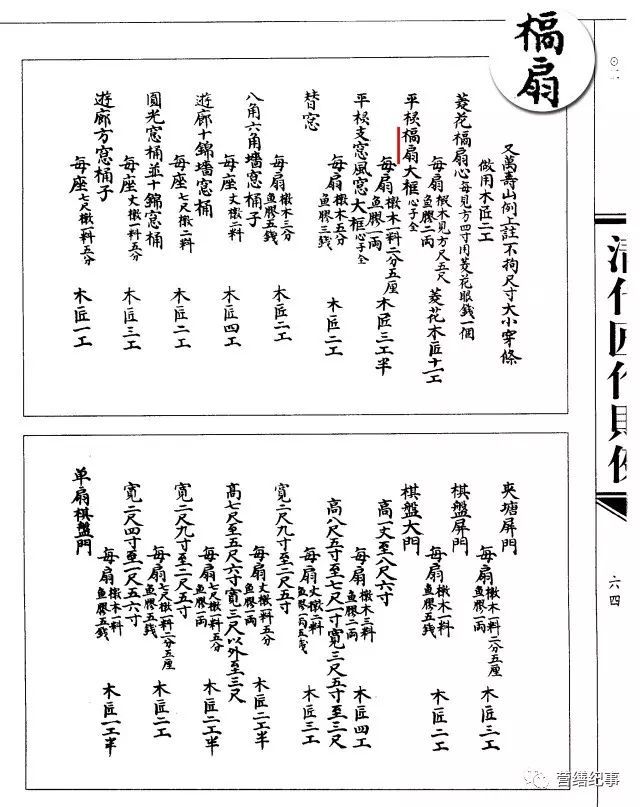 槅扇
⊙二
又萬壽山例上註不拘尺寸大小穿條
做用木匠二工
菱花槅扇心每見方四寸用菱花眼錢一個
每扇椴木見方尺五尺鱼膠二兩 菱花木匠十一工
平棂槅扇大框心子全
每扇椴木一料二分五厘鱼膠一兩 木匠三工半
平棂支窓風窓大框心子全
每扇椴木五分鱼膠三錢 木匠二工
替窓
每扇椴木三分鱼膠五錢 木匠二工
八角六角墻窓桶子
每座丈椴二料 木匠四工
遊廊十錦墻窓桶
每座七尺椴二料 木匠二工
圓光窓桶並十錦窓桶
每座丈椴一料五分 木匠三工
遊廊方窓桶子
每座七尺椴一料五分 木匠一工
夾塘屏門
每扇椴木一料二分五厘鱼膠一兩 木匠三工
棋盤屏門
每扇椴木一料鱼膠五錢 木匠二工
棋盤大門
高一丈至八尺六寸
每扇椴木三料鱼膠二兩 木匠四工
高八尺五寸至七尺一寸寬三尺五寸至三尺
每扇丈椴二料鱼膠一兩五錢 木匠三工
寬二尺九寸至二尺五寸
每扇丈椴一料五分鱼膠一兩 木匠二工半
高七尺至五尺六寸寬三尺以外至三尺
每扇七尺椴一料五分鱼膠一兩 木匠二工半
寬二尺九寸至二尺五寸
每扇七尺椴一料二分五厘鱼膠五錢 木匠二工
寬二尺四寸至一尺五六寸
每扇椴木一料鱼膠五錢 木匠一工半
单扇棋盤門
清代匠作則例
六四
营缮纪事